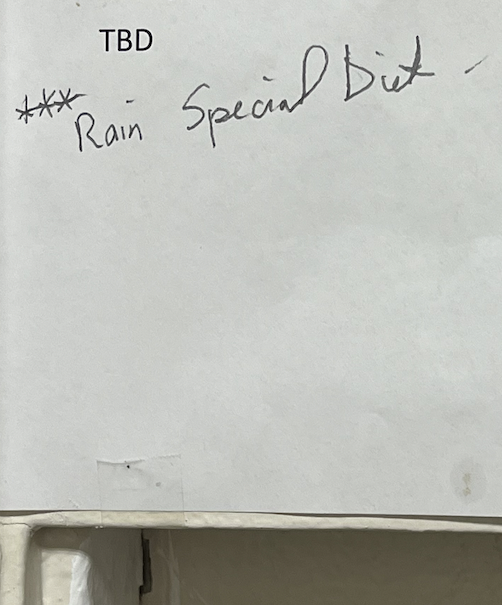 TBD
*** Rain Special Diet -